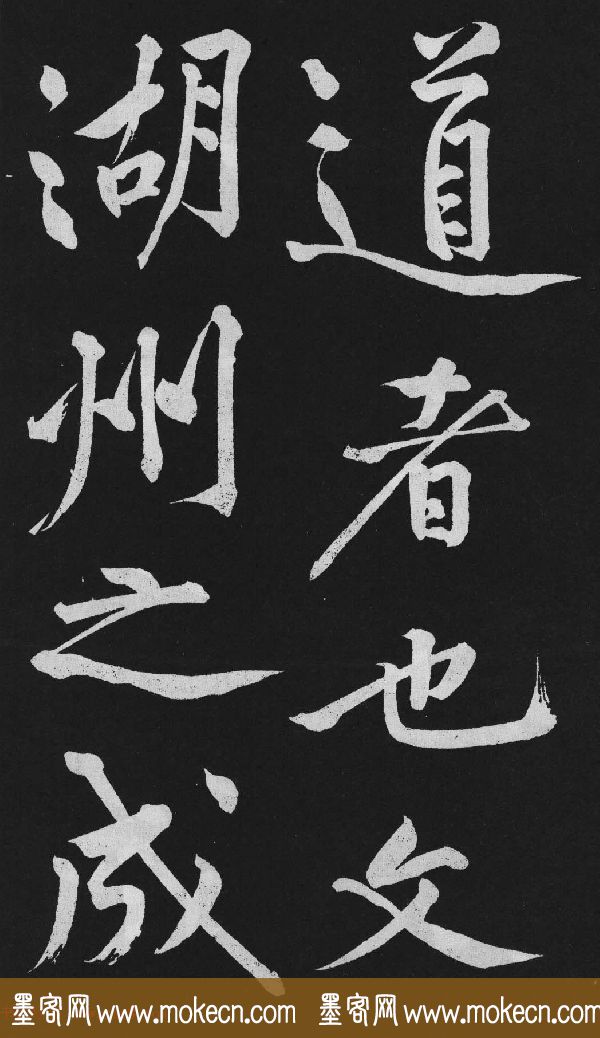 道者也文
湖州之成
墨客网 www.mokecn.com 墨客网 www.mokecn.com